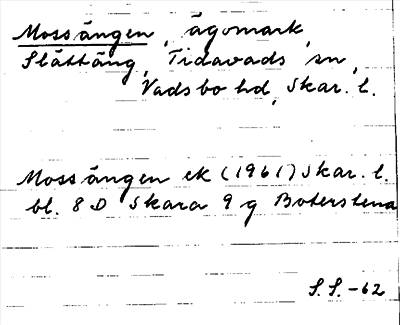 Mossängen, ägomark,
Slättäng, Tidavads sn,
Vadsbo hd, Skar. l.
Mossängen ek (1961) Skar. l.
bl. 8 D Skara 9 gBoterstena
S.S.-62